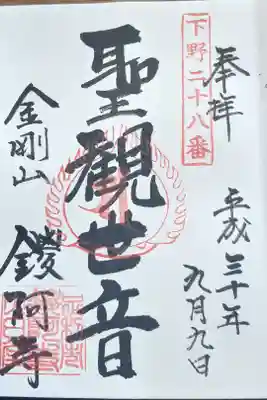 奉拝
下野二十八番
平成三十年
九月九日
聖観世音
金剛山
鑁阿寺